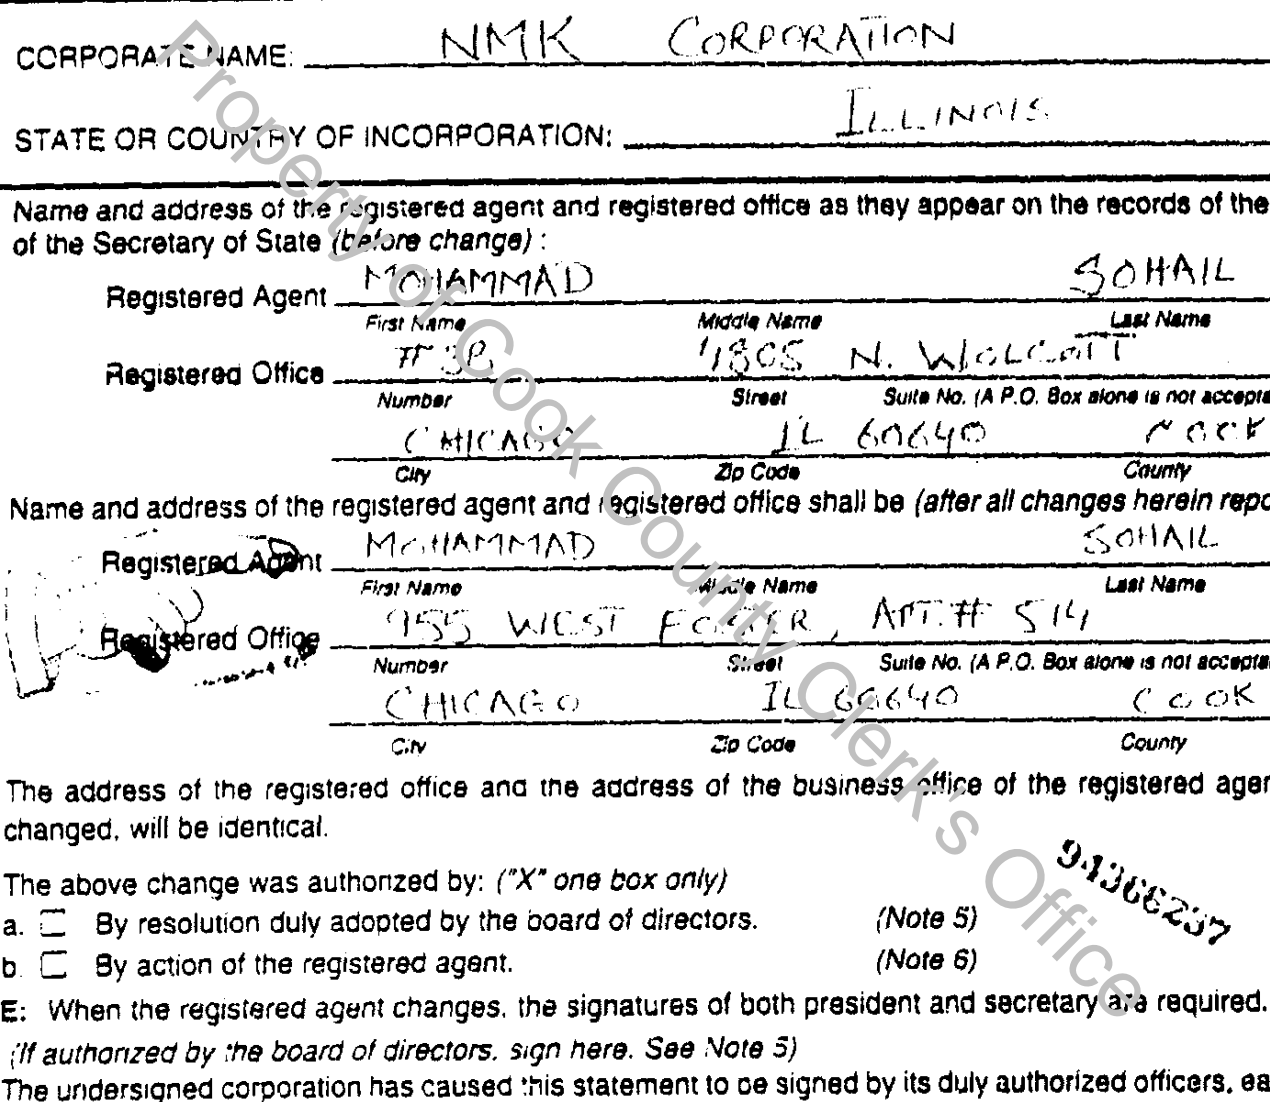 CORPORATE NAME: NMK CORPORATION
STATE OR COUNTRY OF INCORPORATION: ILLINOIS
Name and address of the registered agent and registered office as they appear on the records of the
of the Secretary of State (before change) :
Registered Agent MOHAMMAD SOHAIL
First Name Middle Name Last Name
Registered Office 4805 N. WOLCOTT
Number Street Suite No. (A P.O. Box alone is not accepta
CHICAGO IL 60640 COOK
City Zip Code County
Name and address of the registered agent and registered office shall be (after all changes herein repo
Registered Agent MOHAMMAD SOHAIL
First Name Middle Name Last Name
Registered Office 955 WEST FOSTER, APT. # 514
Number Street Suite No. (A P.O. Box alone is not accepta
CHICAGO IL 60640 COOK
City Zip Code County
The address of the registered office and the address of the business office of the registered agen
changed, will be identical.
The above change was authorized by: ("X" one box only)
a. By resolution duly adopted by the board of directors. (Note 5)
b. By action of the registered agent. (Note 6)
94366237
E: When the registered agent changes, the signatures of both president and secretary are required.
(If authorized by the board of directors, sign here. See Note 5)
The undersigned corporation has caused this statement to be signed by its duly authorized officers, ea
Property of Cook County Clerk's Office